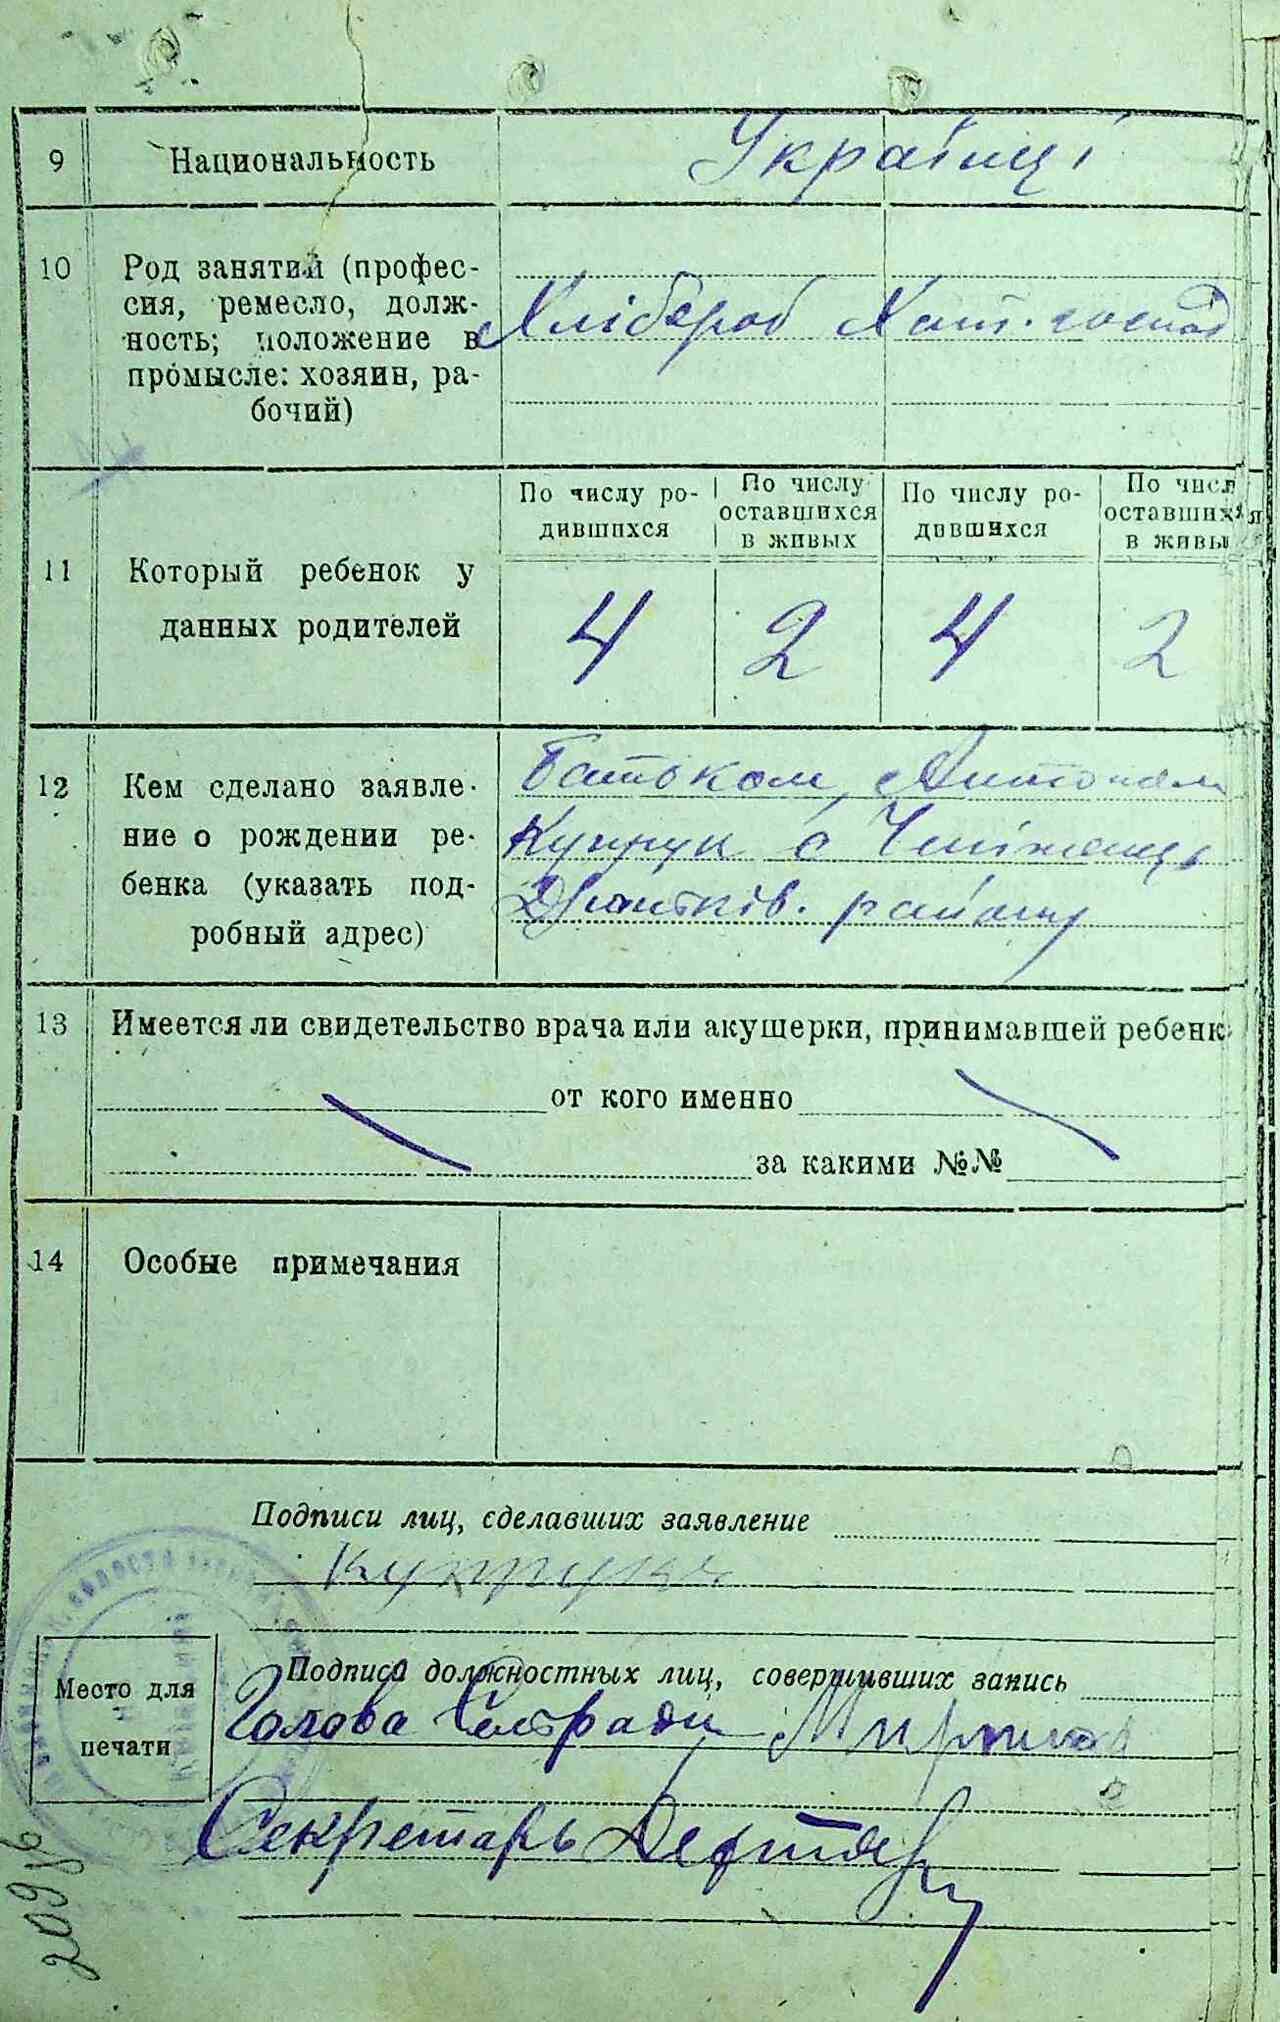 9 Национальность Українці
10 Род занятий (профес-
сия, ремесло, долж-
ность; положение в
промысле: хозяин, ра-
бочий)
Хлібороб Хат. господ
11 Который ребенок у
данных родителей
По числу ро-
дившихся
По числу
оставшихся
в живых
По числу ро-
дившихся
По числ
оставшихся
в живы
4 2 4 2
12 Кем сделано заявле-
ние о рождении ре-
бенка (указать под-
робный адрес)
Батьком, Антоном
Купрук с
району
13 Имеется ли свидетельство врача или акушерки, принимавшей ребенк
от кого именно
за какими №№
14 Особые примечания
Подписи лиц, сделавших заявление
Купрук
Место для
печати
Подписи должностных лиц, совершивших запись
Голова Сільради
Секретарь